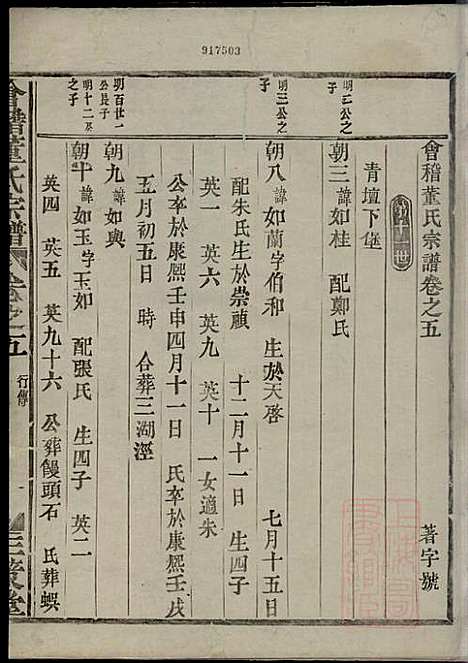 917503
會稽董氏宗譜卷之五
著字號
青壇下堡
明二公之子
朝三諱如桂 配鄭氏
明三公之子
朝八諱如蘭字伯和 生於天啓 七月十五日
配朱氏生於崇禎 十二月十一日 生四子
英一 英六 英九 英十 一女適朱
公卒於康熙壬申四月十一日 氏卒於康熙壬戌
五月初五日 時 合葬三湖涇
明百廿一公長子
朝九諱如與
明十二公之子
朝十諱如玉字玉如 配張氏 生四子 英二
英四 英五 英九十六 公葬饅頭石 氏葬蜈
會稽董氏宗譜 卷之五 行傳 一 三策堂